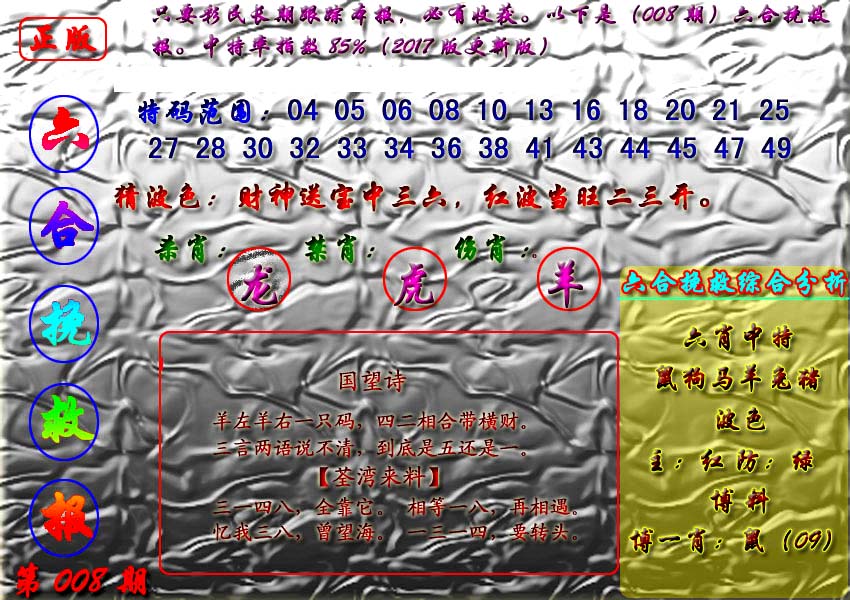 正版
只要彩民长期跟踪本报，必有收获。以下是（008期）六合挽救
报。中特率指数85%（2017版更新版）
六合挽救报
特码范围：04 05 06 08 10 13 16 18 20 21 25
27 28 30 32 33 34 36 38 41 43 44 45 47 49
猜波色：财神送宝中三六，红波当旺二三开。
杀肖：龙 禁肖：虎 伤肖：。羊
国望诗
羊左羊右一只码，四二相合带横财。
三言两语说不清，到底是五还是一。
【荃湾来料】
三一四八，全靠它。 相等一八，再相遇。
忆我三八，曾望海。 一三一四，要转头。
六合挽救综合分析
六肖中特
鼠狗马羊兔猪
波色
主：红防：绿
博料
博一肖：鼠（09）
第008期